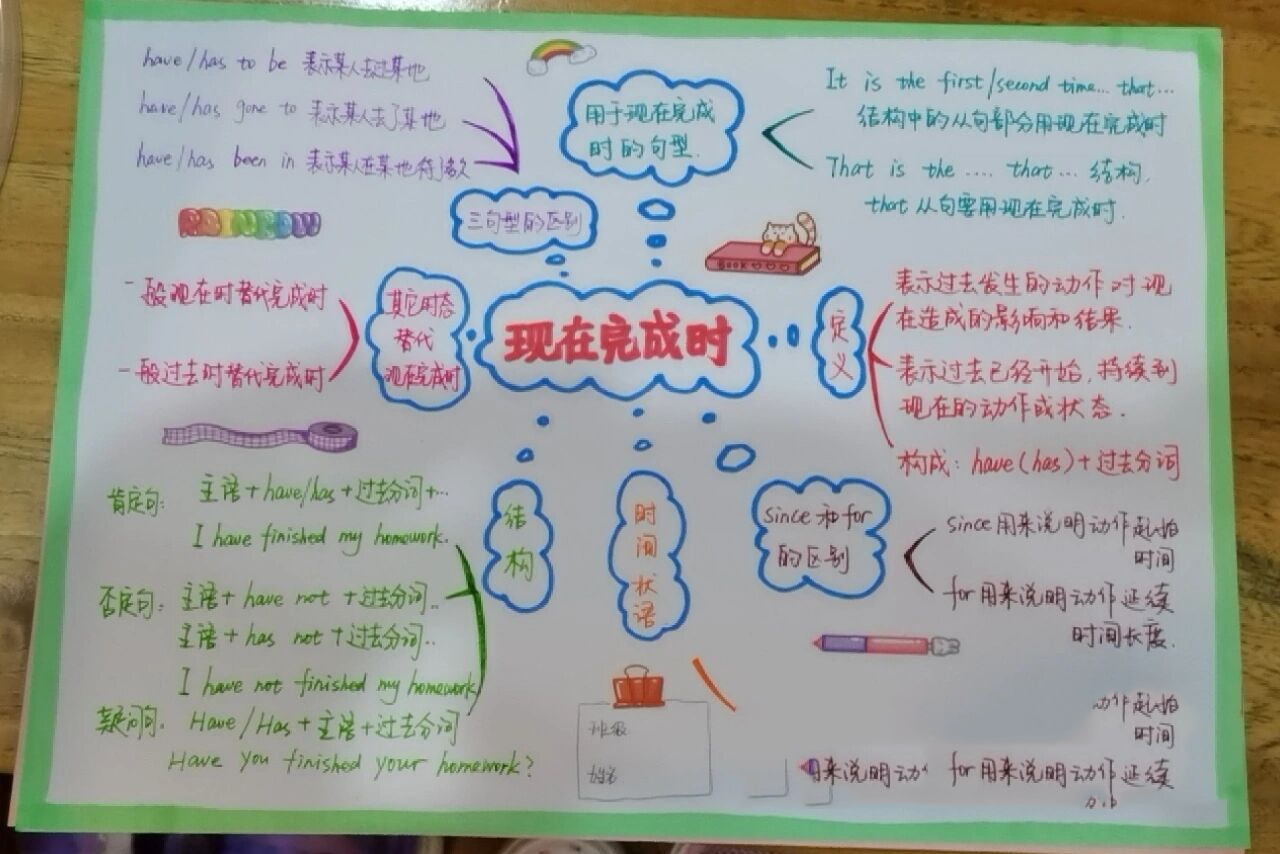 have/has to be 表示某人去过某地
have/has gone to 表示某人去了某地
have/has been in 表示某人在某地待了多久
三句型的区别
用于现在完成
时的句型.
It is the first/second time... that...
结构中的从句部分用现在完成时
That is the .... that... 结构,
that从句要用现在完成时.
RAINBOW
BOOK
一般现在时替代完成时
一般过去时替代完成时
其它时态
替代
现在完成时
现在完成时
定义
表示过去发生的动作对现
在造成的影响和结果.
表示过去已经开始,持续到
现在的动作或状态.
构成: have(has)+过去分词
肯定句: 主语+have/has+过去分词+...
I have finished my homework.
否定句: 主语+have not+过去分词..
主语+has not+过去分词..
I have not finished my homework
疑问句. Have/Has+主语+过去分词
Have you finished your homework?
结构
时间状语
since和for
的区别
since用来说明动作起始
时间
for用来说明动作延续
时间长度.
班级
姓名
动作起始
时间
用来说明动作 for用来说明动作延续